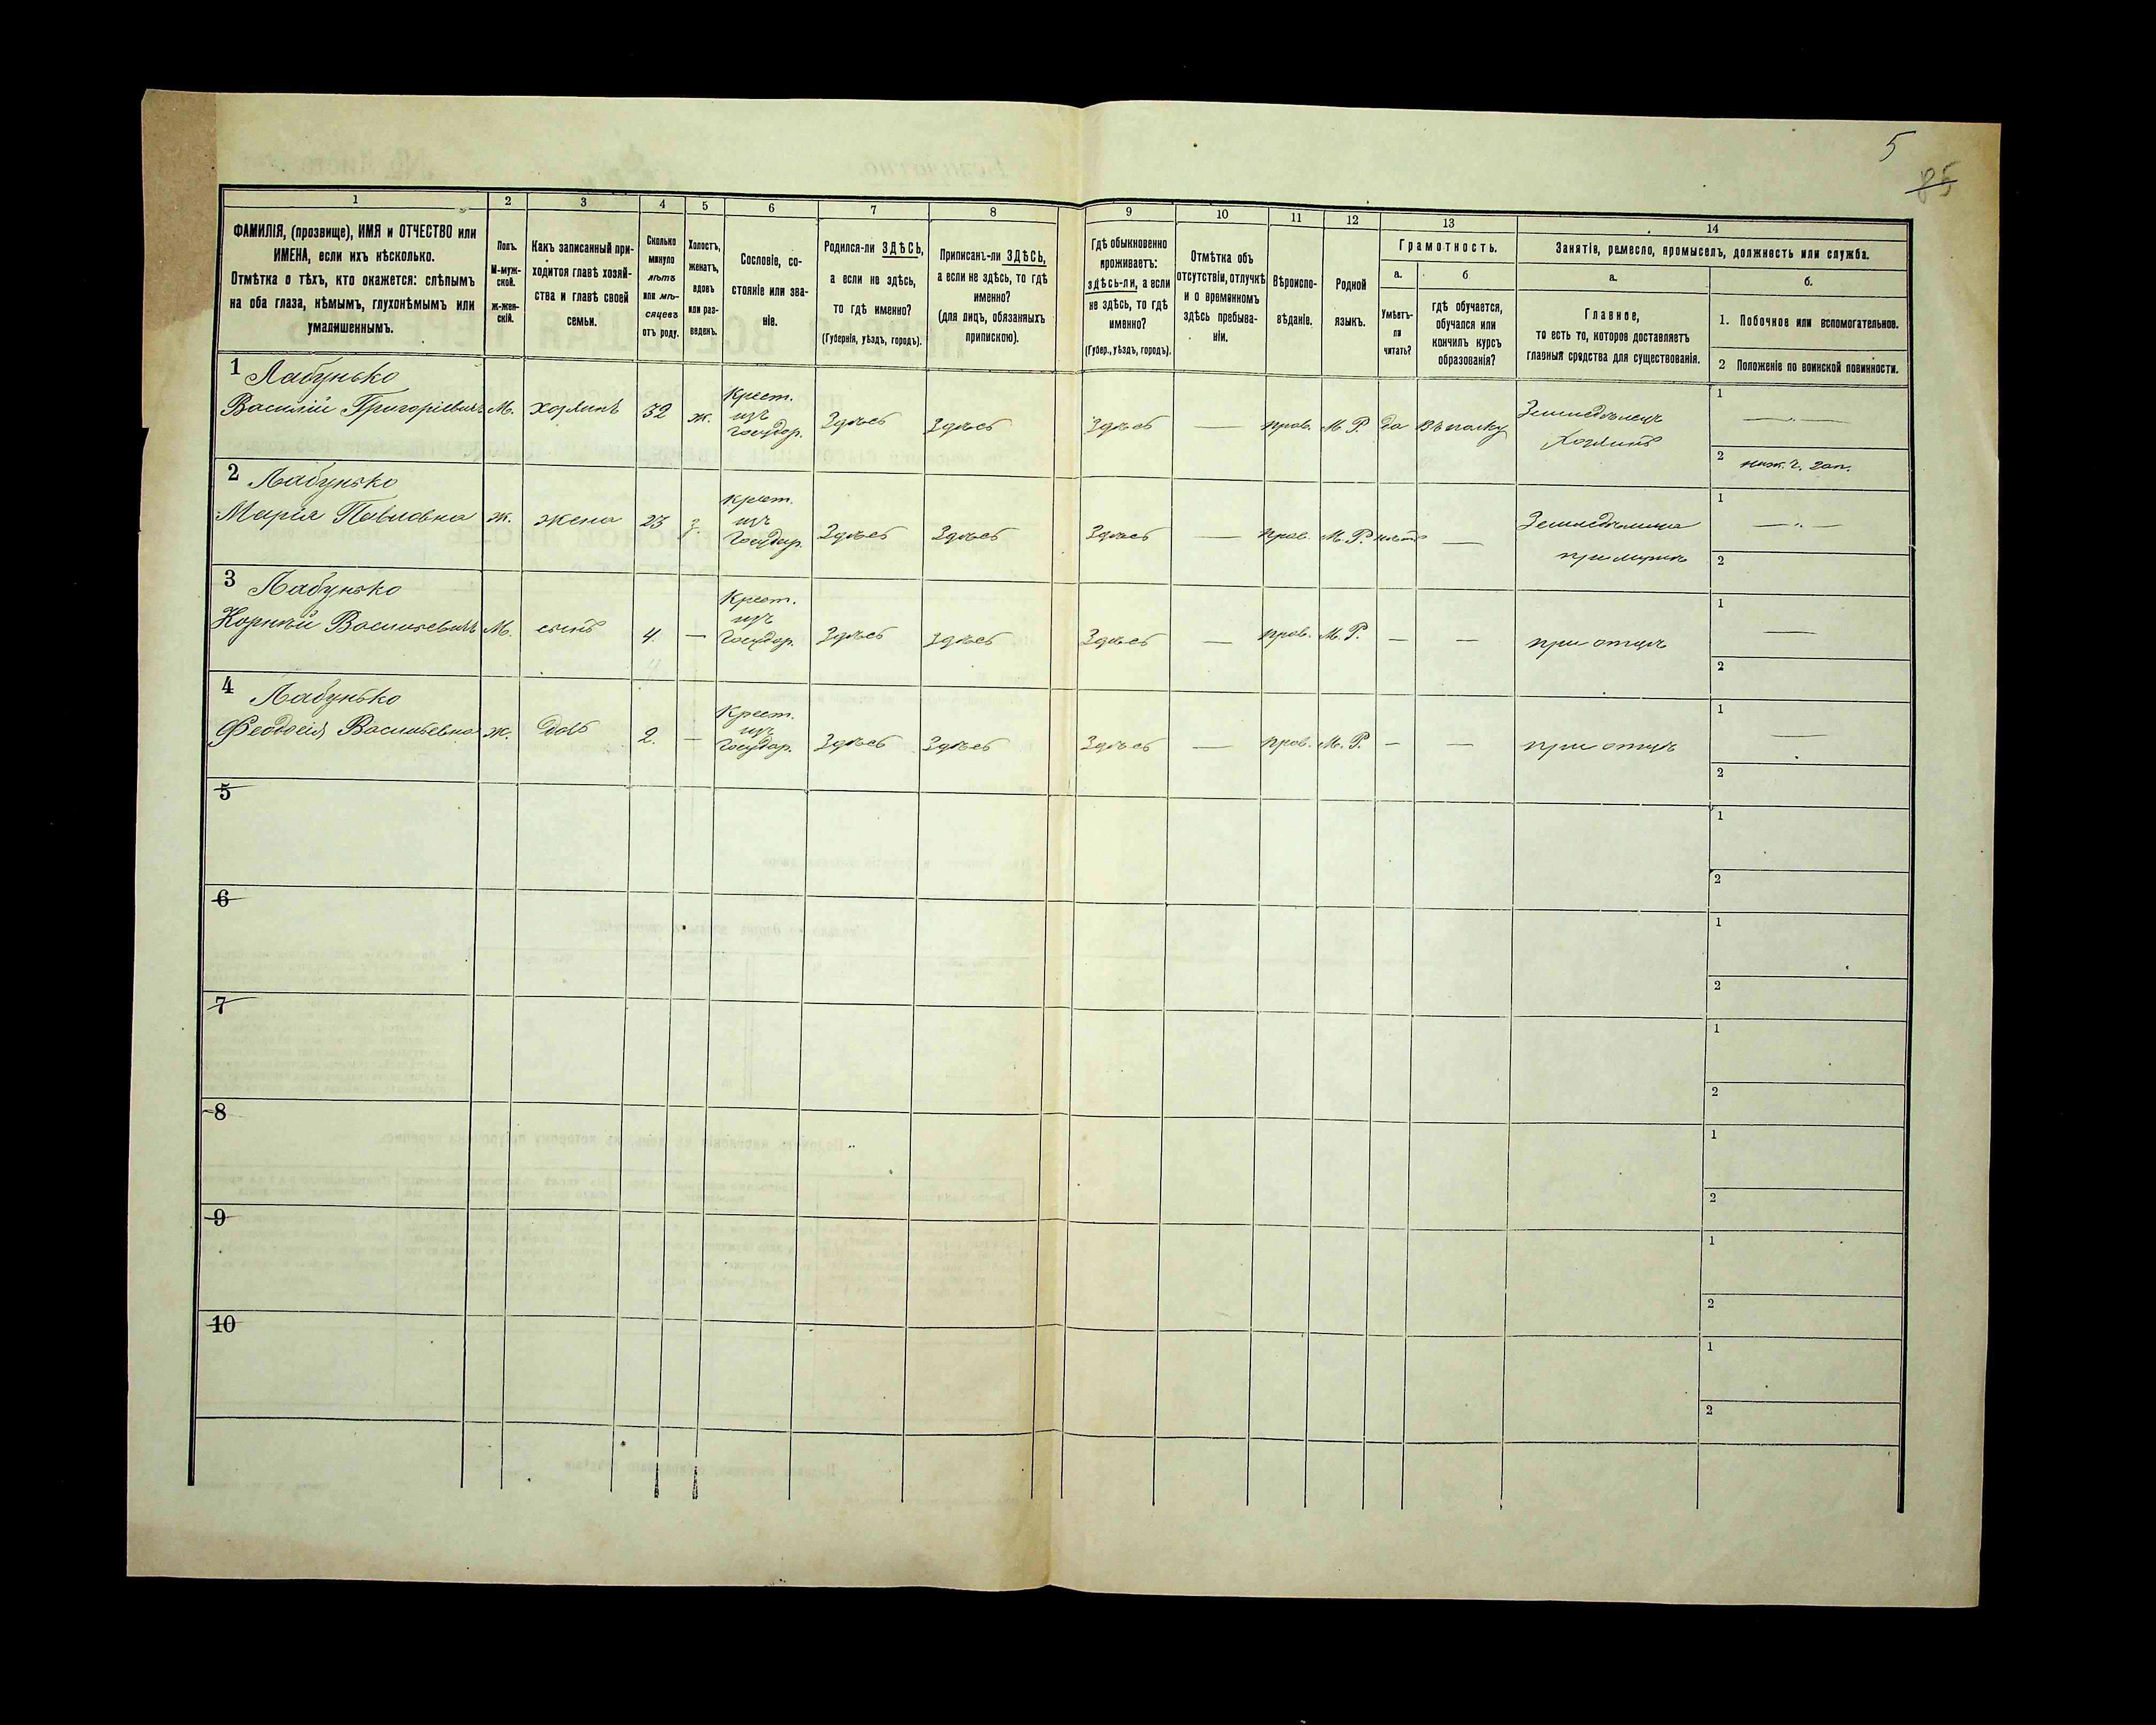 5
85
1
2
3
4
5
6
7
8
9
10
11
12
13
14
ФАМИЛІЯ, (прозвище), ИМЯ и ОТЧЕСТВО или
ИМЕНА, если ихъ нѣсколько.
Отмѣтка о тѣхъ, кто окажется: слѣпымъ
на оба глаза, нѣмымъ, глухонѣмымъ или
умалишеннымъ.
Полъ.
М-муж-
ской.
ж-жен-
скій.
Какъ записанный при-
ходится главѣ хозяй-
ства и главѣ своей
семьи.
Сколько
минуло
лѣтъ
или мѣ-
сяцевъ
отъ роду.
Холостъ,
женатъ,
вдовъ
или раз-
веденъ.
Сословіе, со-
стояніе или зва-
ніе.
Родился-ли ЗДѢСЬ,
а если не здѣсь,
то гдѣ именно?
(Губернія, уѣздъ, городъ).
Приписанъ-ли ЗДѢСЬ,
а если не здѣсь, то гдѣ
именно?
(для лицъ, обязанныхъ
припискою).
Гдѣ обыкновенно
проживаетъ:
здѣсь-ли, а если
не здѣсь, то гдѣ
именно?
(Губер., уѣздъ, городъ).
Отмѣтка объ
отсутствіи, отлучкѣ
и о временномъ
здѣсь пребыва-
ніи.
Вѣроиспо-
вѣданіе.
Родной
языкъ.
Грамотность.
а.
б.
Умѣетъ-
ли
читать?
гдѣ обучается,
обучался или
кончилъ курсъ
образованія?
Занятіе, ремесло, промыселъ, должность или служба.
а.
б.
Главное,
то есть то, которое доставляетъ
главныя средства для существованія.
1. Побочное или вспомогательное.
2 Положеніе по воинской повинности.
1 Лабунько
Василій Григоріевичъ М. хозяинъ 32 ж. Крест.
изъ
Государ. Здѣсь Здѣсь Здѣсь — прав. М. Р. да въ полку Земледѣлецъ
Хозяинъ
1 —
2 ниж. ч. зап.
2 Лабунько
Марія Павловна ж. жена 23 з. Крест.
изъ
Государ. Здѣсь Здѣсь Здѣсь — прав. М. Р. нѣтъ —
при мужѣ
1 —
2
3 Лабунько
Корнѣй Васильевичъ М. сынъ 4. — Крест.
изъ
Государ. Здѣсь Здѣсь Здѣсь — прав. М. Р. — — при отцѣ
1 —
2
4 Лабунько
Феодосія Васильевна ж. дочь 2. — Крест.
изъ
Государ. Здѣсь Здѣсь Здѣсь — прав. М. Р. — — при отцѣ
1 —
2
5
1
2
6
1
2
7
1
2
8
1
2
9
1
2
10
1
2